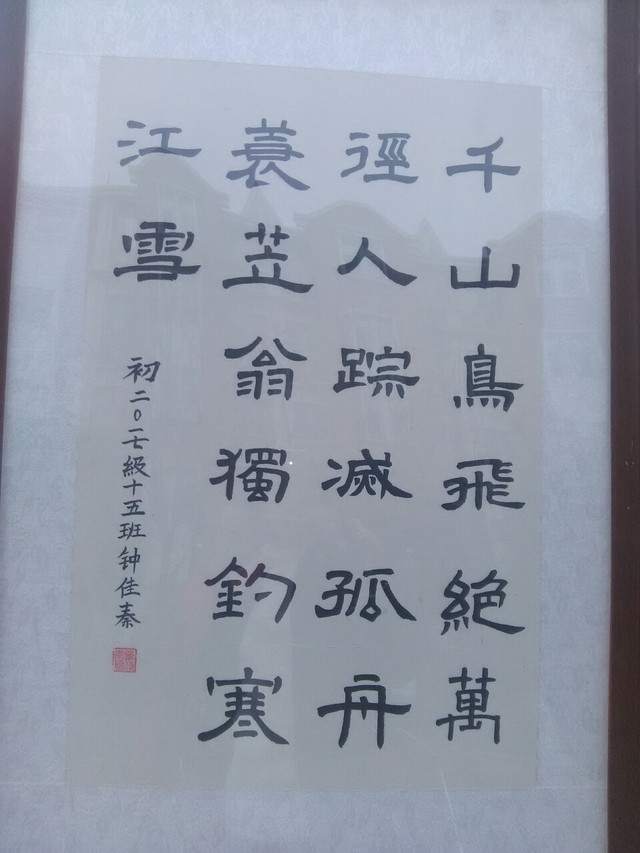 千山鳥飛絕萬
徑人踪滅孤舟
蓑笠翁獨釣寒
江雪
初二〇一七級十五班钟佳秦